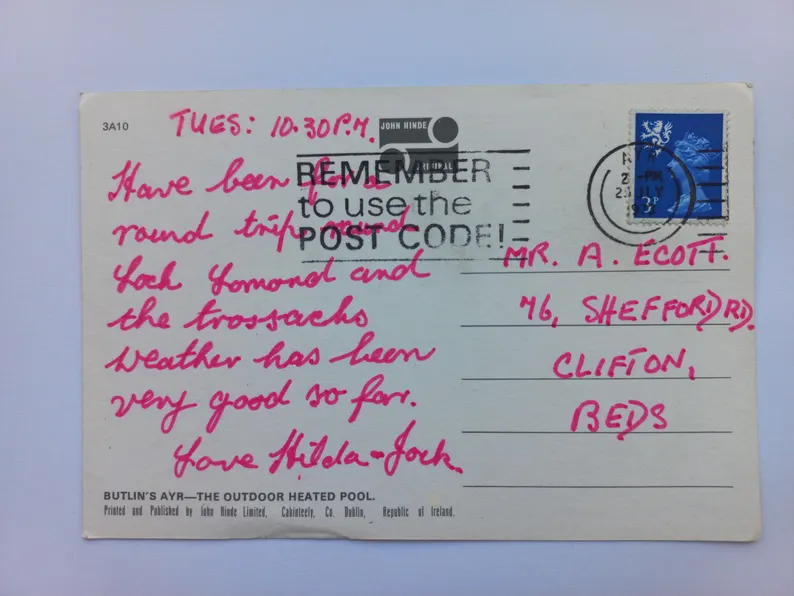 3A10
TUES: 10.30P.M.
JOHN HINDE
ORIGINAL
REMEMBER
to use the
POST CODE!
Have been for a
round trip round
Loch Lomond and
the trossachs
weather has been
very good so far.
Love Hilda - Jock.
AYR
-PM
3P
MR. A. ECOTT.
76, SHEFFORD RD.
CLIFTON,
BEDS
BUTLIN'S AYR—THE OUTDOOR HEATED POOL.
Printed and Published by John Hinde Limited, Cabinteely, Co. Dublin, Republic of Ireland.